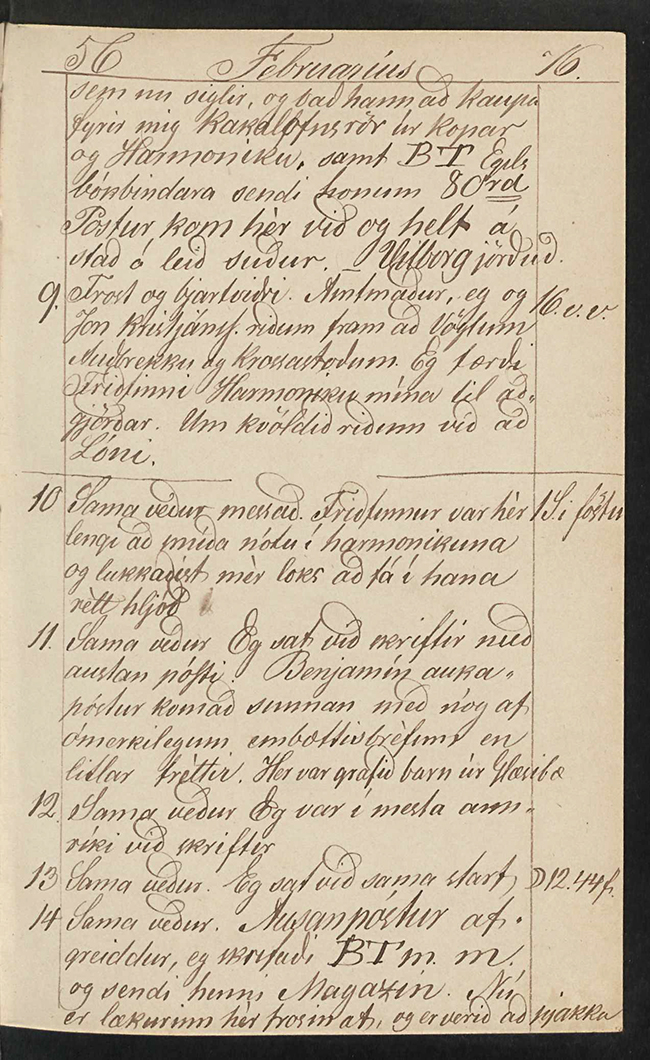 56 Februarius 16.
sem nu siglir, og bad hann ad kaupa
fyrir mig kakalofnsrör úr kopar
og Harmoniku, samt BT Egils
bókbindara sendi honum 8 Ord
Póstur kom hèr við og helt á
stad á leid sudur. Vilborg jörðuð.
9. Frost og bjartviðri. Amtmaður, eg og 16. v. v.
Jón Kristjánss. riðum fram að Vöglum
Miðbrekku og Krossastoðum. Eg færði
Friðfinni Harmoniku mína til að-
gjörðar. Um kvöldið riðum við að
Lóni.
10 Sama veður messað. Friðfinnur var hèr 1 S. í föstu
lengi að smíða nótu í harmonikuna
og lukkaðist mèr loks að fá í hana
rètt hljóð
11. Sama veður Eg sat við skriftir með
austan pósti. Benjamín auka-
póstur kom að sunnan með nóg af
ómerkilegum embættisbrèfum en
litlar frèttir. Her var grafið barn úr Glæsibæ
12. Sama veður Eg var í mesta ann-
ríki við skriftir
13 Sama veður. Eg sat við sama starf, 12.44 f.
14 Sama veður. Ausanpóstur af-
greiddur, eg skrifaði BT m. m.
og sendi henni Magazin. Nú
er lækurinn hèr frosin af, og er verið að pjakka